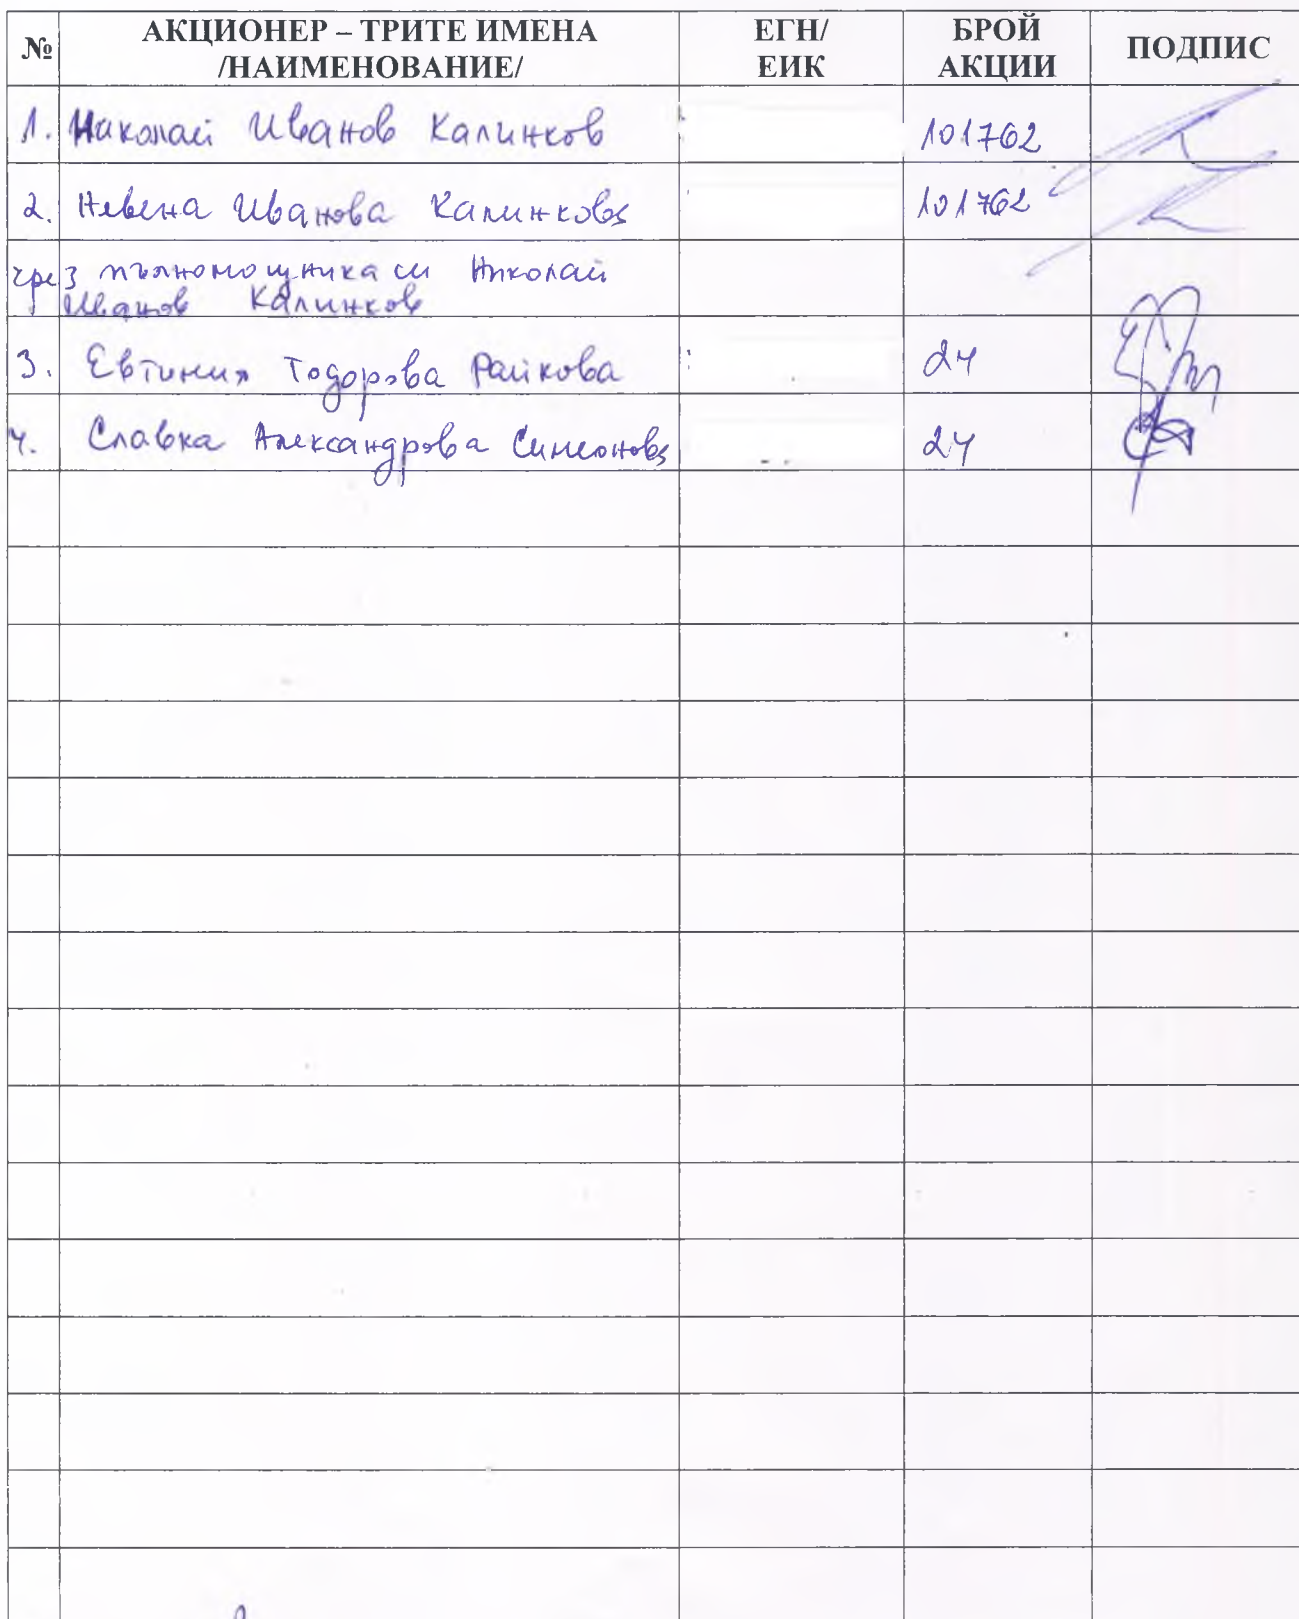 № АКЦИОНЕР – ТРИТЕ ИМЕНА /НАИМЕНОВАНИЕ/ ЕГН/ ЕИК БРОЙ АКЦИИ ПОДПИС
1. Николай Иванов Калинков 101762
2. Невена Иванова Калинкова 101762
чрез пълномощника си Николай
Иванов Калинков
3. Евтимия Тодорова Райкова 24
4. Славка Александрова Симеонова 24